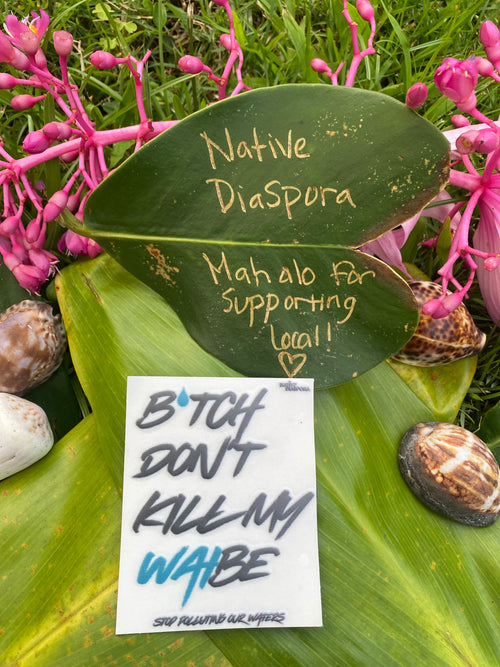 Native
Diaspora
Mahalo for
Supporting
Local!
NATIVE
DIASPORA
B'TCH
DON'T
KILL MY
WAIBE
STOP POLLUTING OUR WATERS